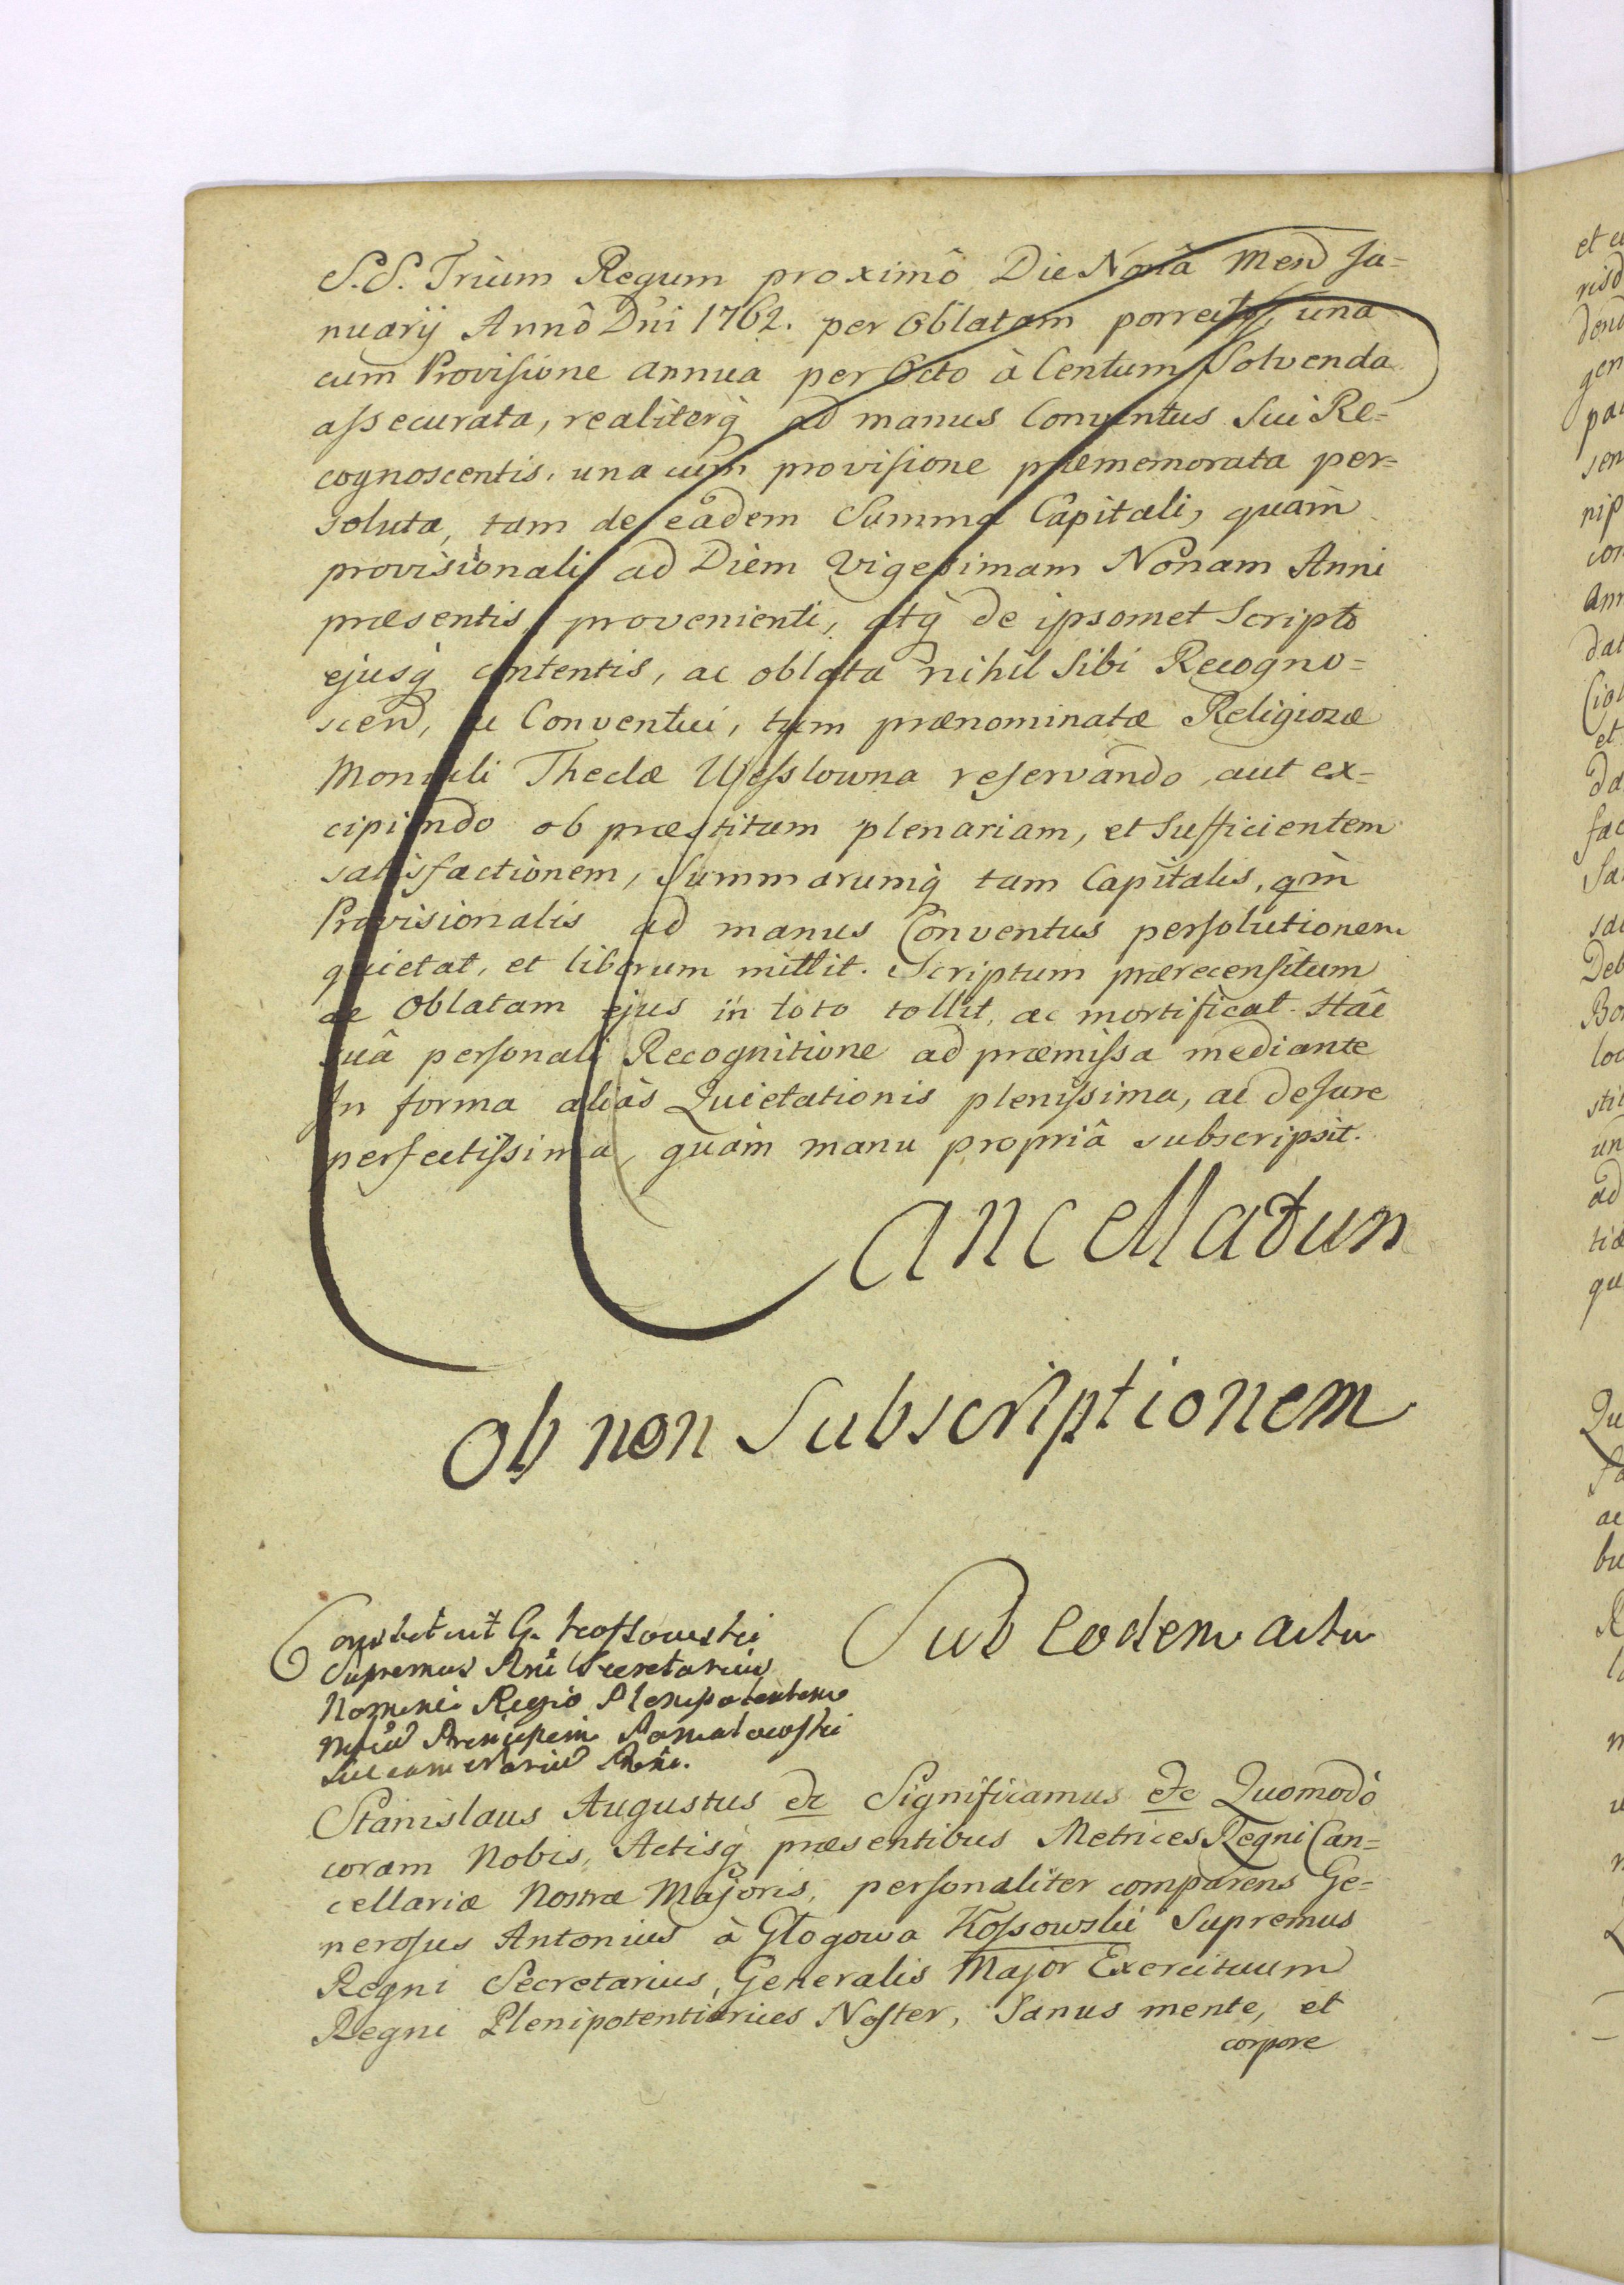 S.S. Trium Regum proximô Die Nonâ Mens Ja=
nuarij Annô Dni 1762. per Oblatam porrecto, una
cum Provisione annua per Octo à Centum Solvenda
assecurata, realiterq̀ ad manus Conventus Sui Re=
cognoscentis, una cum provisione præmemorata per=
soluta, tam de eâdem Summa Capitali, quàm
provisionali ad Diem Vigesimam Nonam Anni
præsentis provenienti, atq̀ de ipsomet Scripto
ejusq̀ contentis, ac oblata nihil Sibi Recogno=
scend, ac Conventui, tum prænominatæ Religiosæ
Moniali Theclæ Wesslowna reservando aut ex=
cipiendo ob præstitam plenariam, et Sufficientem
satisfactionem, Summarumq̀ tam Capitalis, qm̀
Provisionalis ad manus Conventus persolutionem
quietat, et liberum mittit. Scriptum prærecensitum
ac Oblatam ejus in toto tollit, ac mortificat. Hâc
suâ personali Recognitione ad præmissa mediante
In forma aliàs Quietationis plenissima, ac de Jure
perfectissima, quàm manu propriâ subscripsit.
Cancellatum
Ob non Subscriptionem
Sub eodem actu
Constituit G. Kossowski
Supremus Rni Secretarius
Nomine Regio Plenipotentem
Principem Poniatowski
Succamerarium Rni.
Stanislaus Augustus etc Significamus etc Quomodò
coram Nobis, Actisq̀ præsentibus Metrices Regni Can=
cellariæ Nostræ Majoris, personaliter comparens Ge=
nerosus Antonius à Głogowa Kossowski Supremus
Regni Secretarius, Generalis Major Exercituum
Regni Plenipotentiarius Noster, Sanus mente, et
corpore